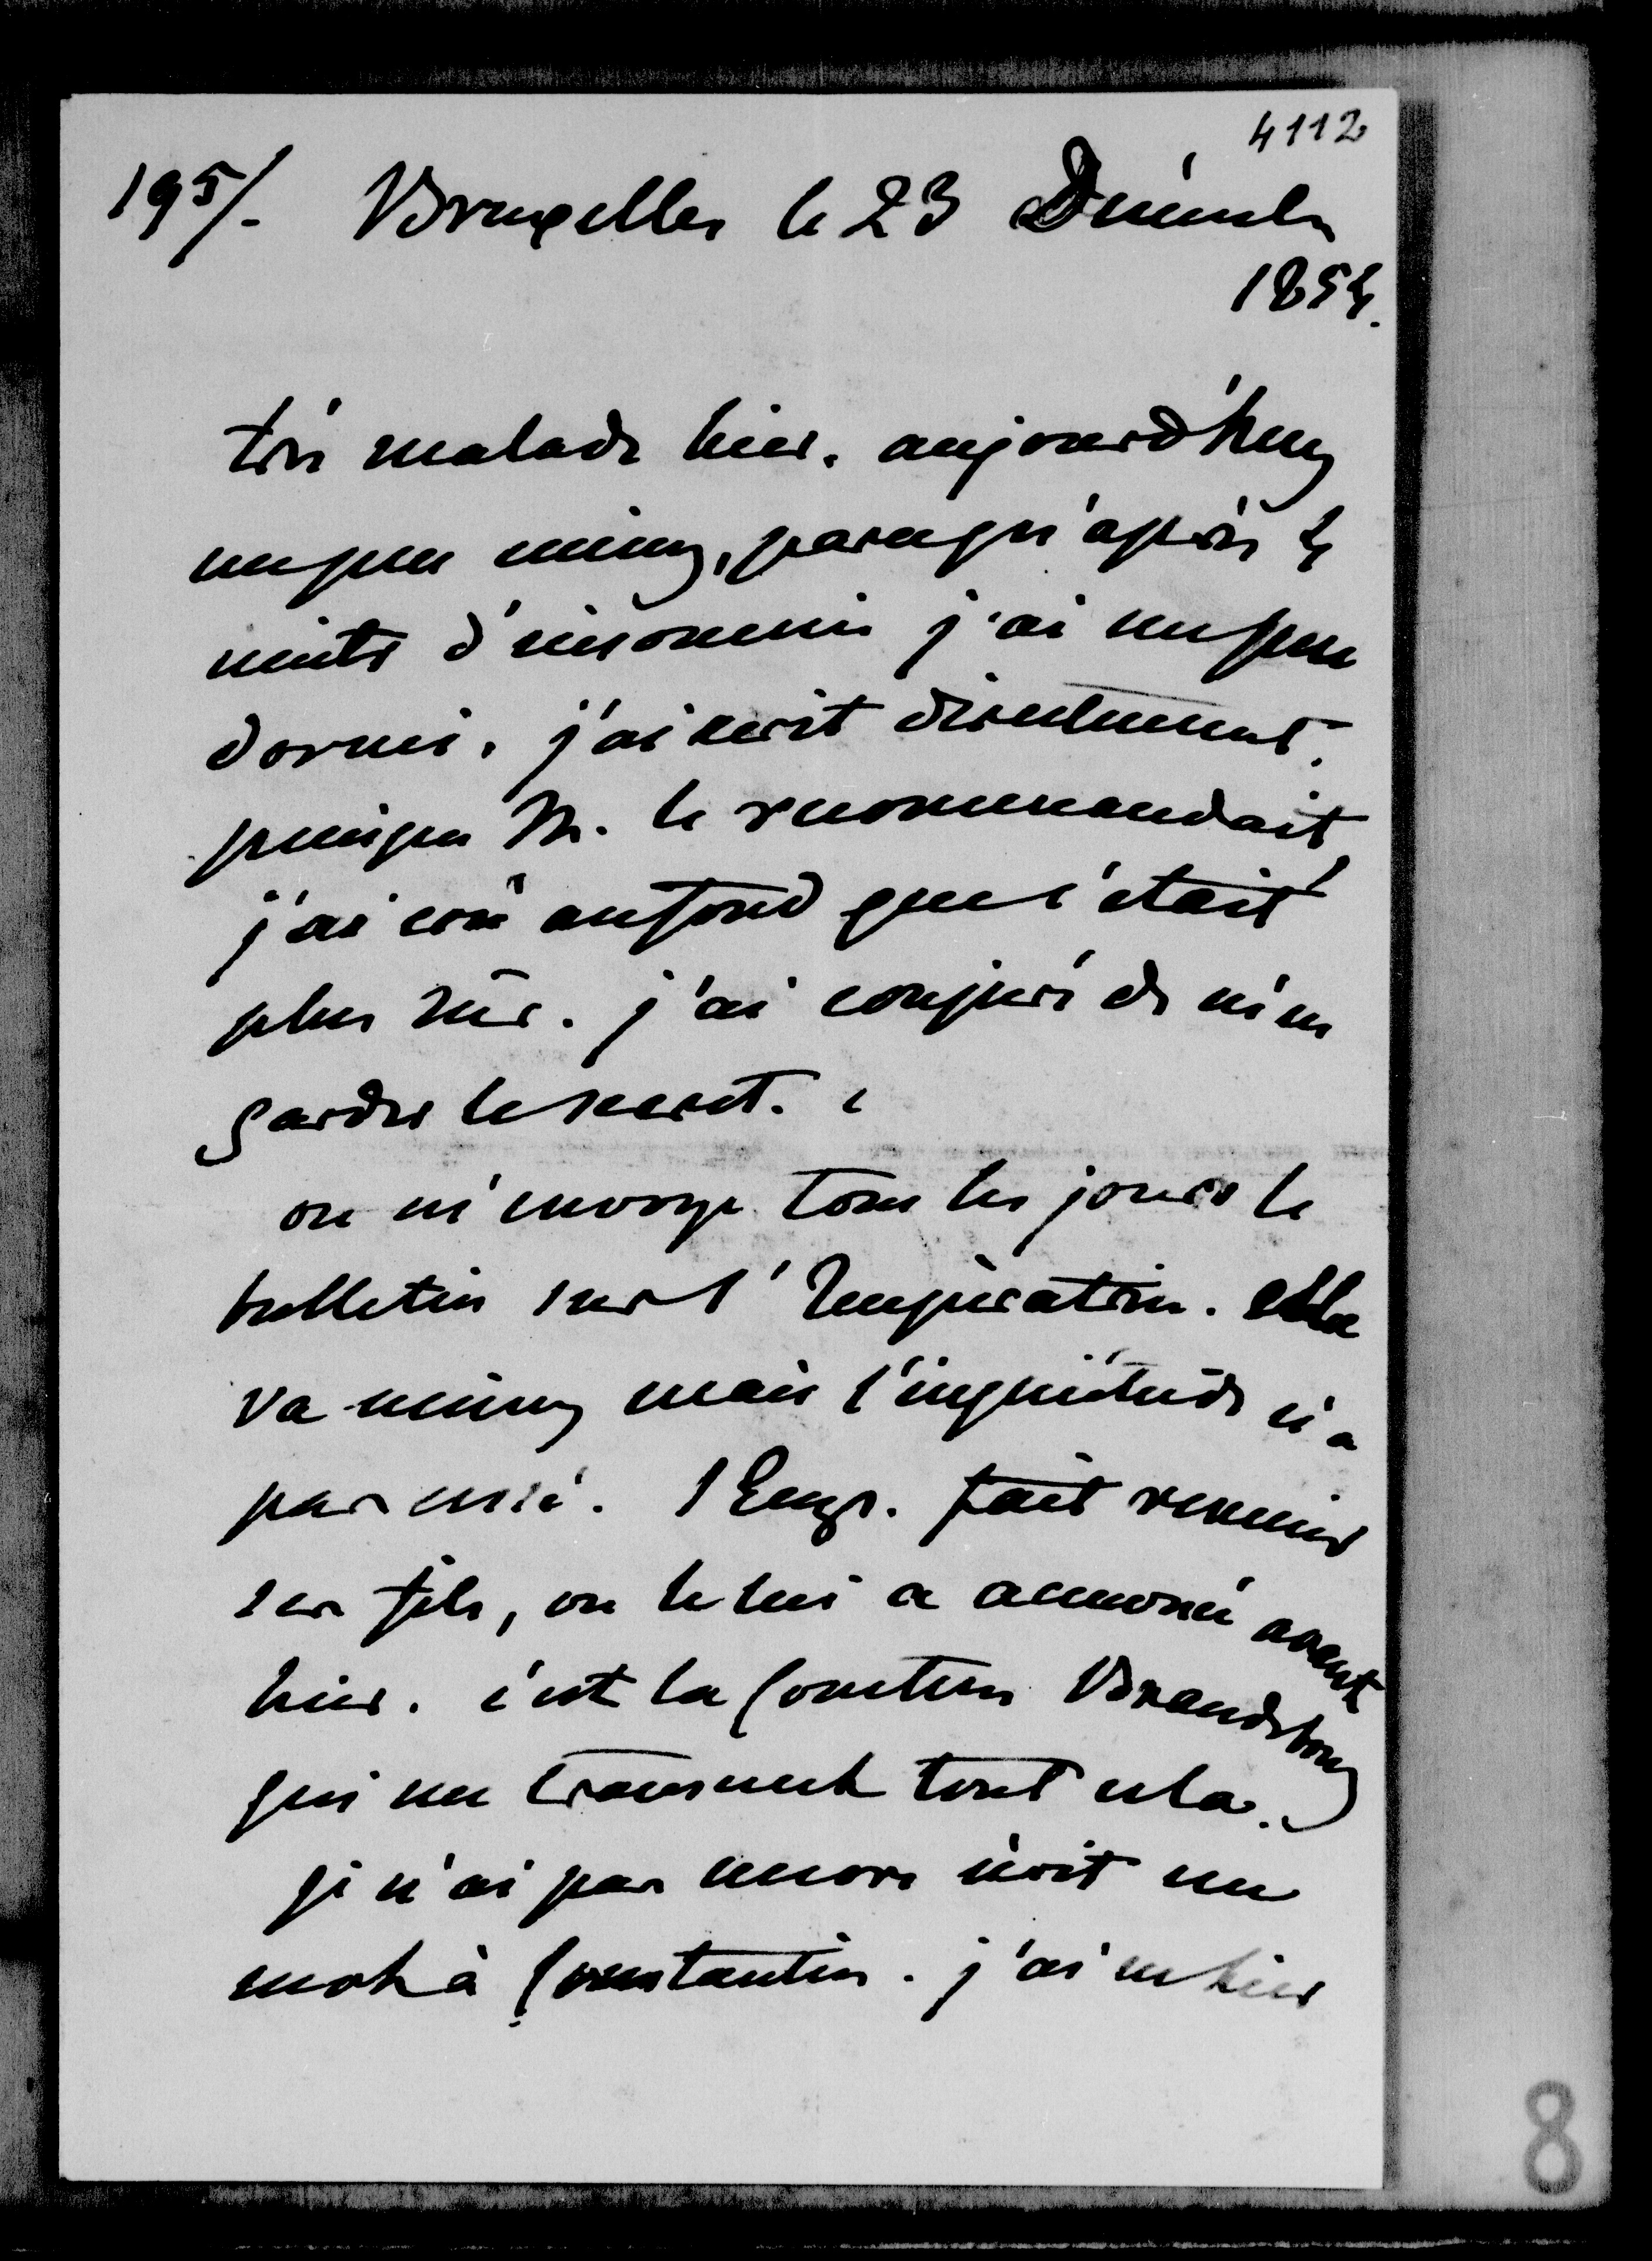 4112
195/. Bruxelles le 23 Décembre
1854.
très malade hier. aujourd'huy
un peu mieux, parcequ'après 4
nuits d'insomnie j'ai un peu
dormi. j'ai écrit directement.
puisque M. le recommandait,
j'ai cru au fond que c'était
plus sûr. j'ai conjuré de m'en
garder le secret.
on m'envoye tous les jours le
bulletin sur l'Impératrice. elle
va mieux mais l'inquiétude n'a
pas cessé. l'Emp. fait revenir
ses fils, on le lui a annoncé avant
hier. c'est la Comtesse Brandebourg
qui me transmet tout cela.
je n'ai pas encore écrit un
mot à Constantin. j'ai vu hier
8